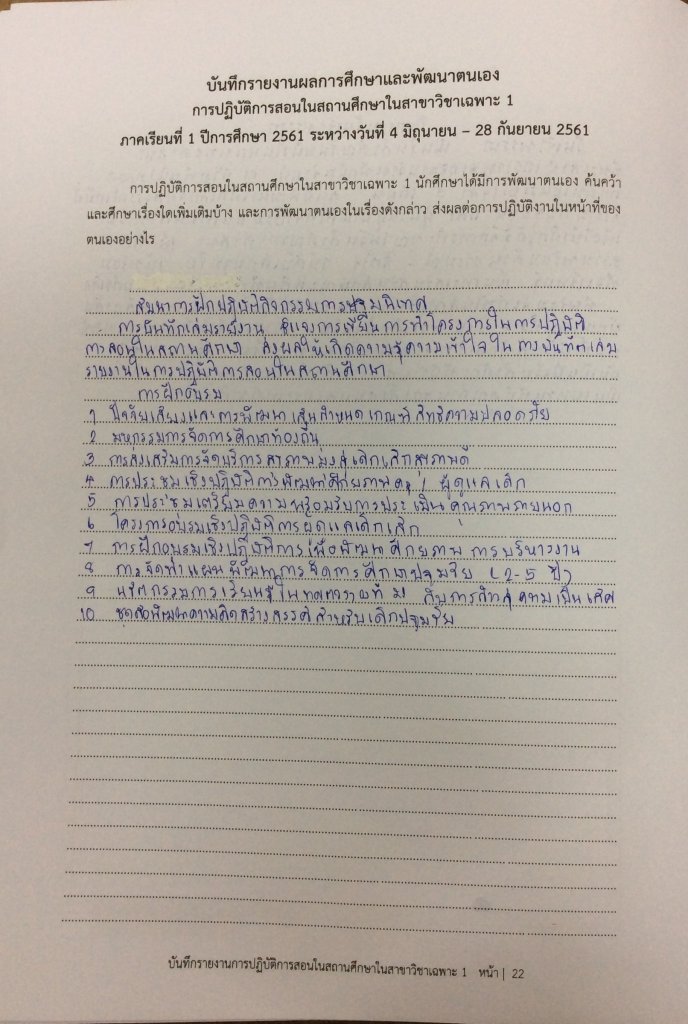 บันทึกรายงานผลการศึกษาและพัฒนาตนเอง
การปฏิบัติการสอนในสถานศึกษาในสาขาวิชาเฉพาะ 1
ภาคเรียนที่ 1 ปีการศึกษา 2561 ระหว่างวันที่ 4 มิถุนายน – 28 กันยายน 2561
การปฏิบัติการสอนในสถานศึกษาในสาขาวิชาเฉพาะ 1 นักศึกษาได้มีการพัฒนาตนเอง ค้นคว้า
และศึกษาเรื่องใดเพิ่มเติมบ้าง และการพัฒนาตนเองในเรื่องดังกล่าว ส่งผลต่อการปฏิบัติงานในหน้าที่ของ
ตนเองอย่างไร
สัมนาการฝึกปฏิบัติกิจกรรมการปฐมนิเทศ
การบันทึกเล่มรายงาน ชี้แจงการเขียนการทำโครงการในการปฏิบัติ
การสอนในสถานศึกษา ส่งผลให้เกิดความรู้ความเข้าใจในการบันทึกเล่ม
รายงานในการปฏิบัติการสอนในสถานศึกษา
การฝึกอบรม
1 ปัจจัยเสี่ยงและการพัฒนา เกณฑ์ ความปลอดภัย
2 มหกรรมการจัดการศึกษาท้องถิ่น
3 การส่งเสริมการจัดบริการสุขภาพ เด็กเล็กสุขภาพดี
4 การประชุมเชิงปฏิบัติการพัฒนาศักยภาพครู / ผู้ดูแลเด็ก
5 การประชุมเตรียมความพร้อมรับการประเมินคุณภาพภายนอก
6 โครงการอบรมเชิงปฏิบัติการผู้ดูแลเด็กเล็ก
7 การฝึกอบรมเชิงปฏิบัติการเพื่อพัฒนาศักยภาพการบริหารงาน
8 การจัดทำแผนพัฒนาการจัดการศึกษาปฐมวัย (2-5 ปี)
9 นวัตกรรมการเรียนรู้ในศตวรรษที่ 21 กับการก้าวสู่ความเป็นเลิศ
10 ชุดสื่อพัฒนาความคิดสร้างสรรค์สำหรับเด็กปฐมวัย
บันทึกรายงานการปฏิบัติการสอนในสถานศึกษาในสาขาวิชาเฉพาะ 1 หน้า | 22